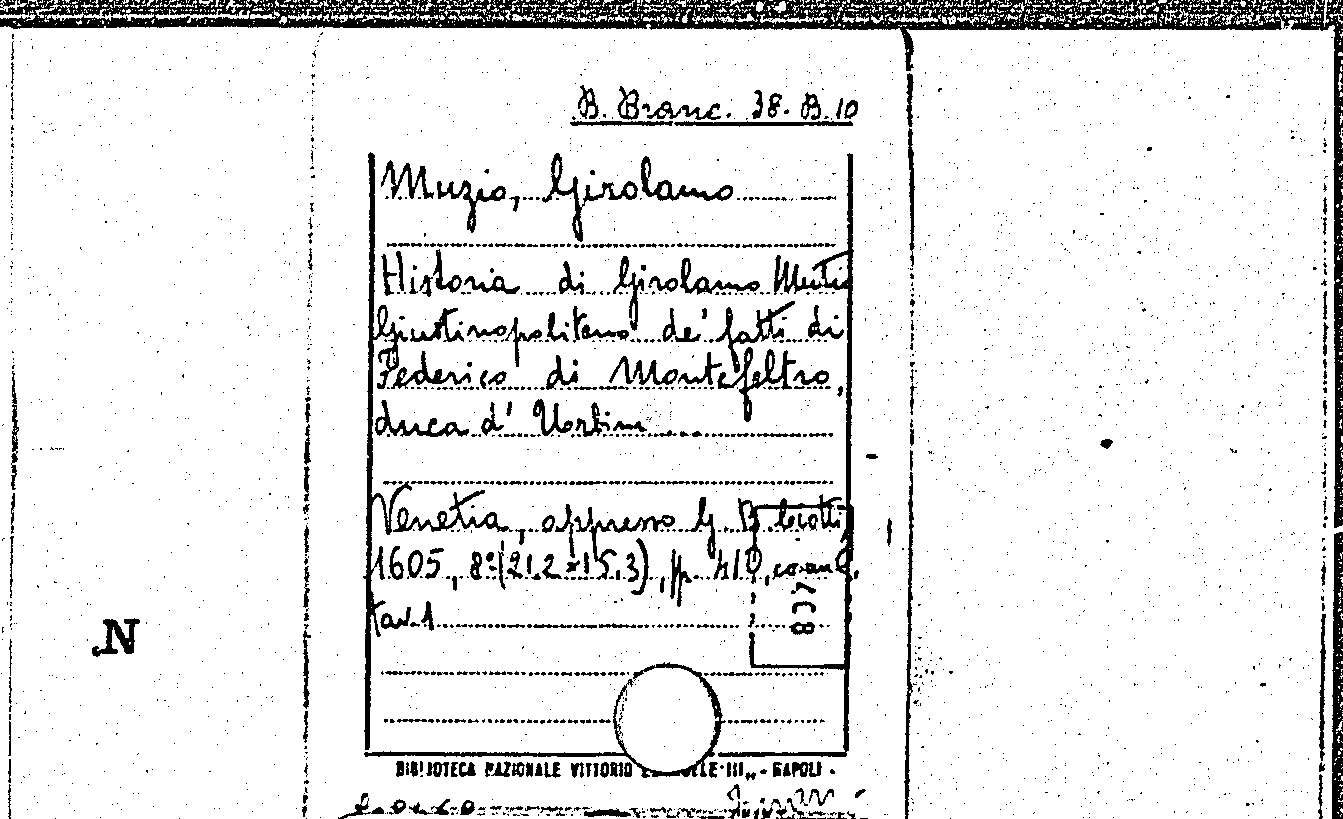 B. Branc. 38. B. 10
Muzio, Girolamo
Historia di Girolamo Mutio
Giustinopolitano de' fatti di
Federico di Montefeltro,
duca d' Urbino ...
Venetia, appresso G. B. Ciotti,
1605, 8° (21,2 x 15,3), pp. 410,
tav. 1
837
N.
BIBLIOTECA NAZIONALE VITTORIO - NAPOLI -